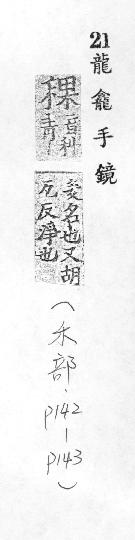 21龍龕手鏡
稞 音科
青
麥名也又胡
瓦反淨也
(禾部.
p142
—
p143)